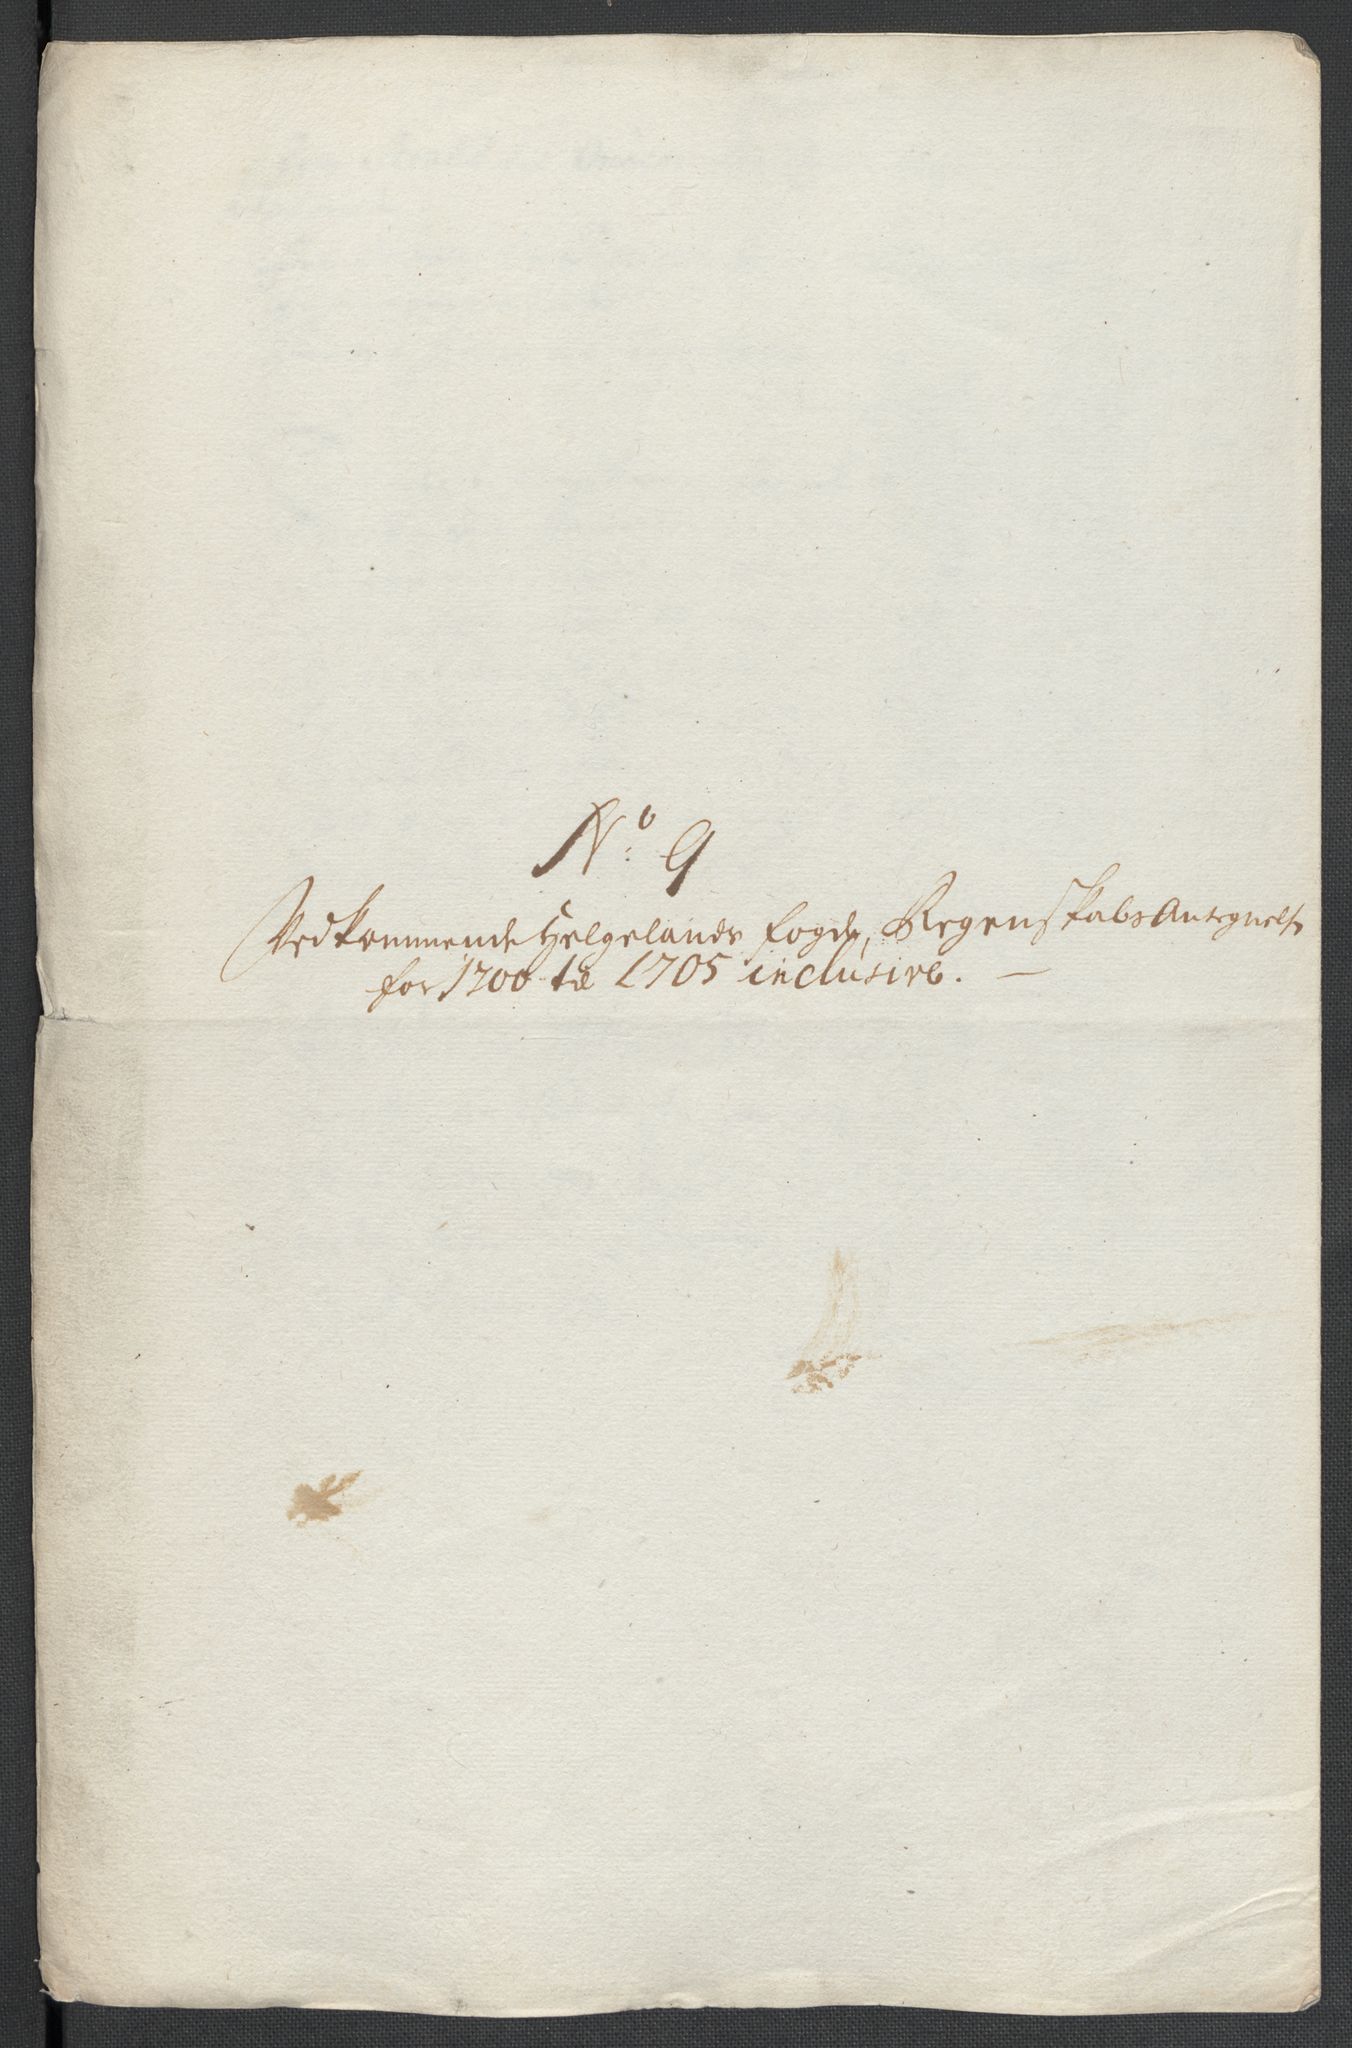 No: 9
Vedkommende Helgelands fogdr, Regenskabs Antegnelser
for 1700 til 1705 inclusive. —